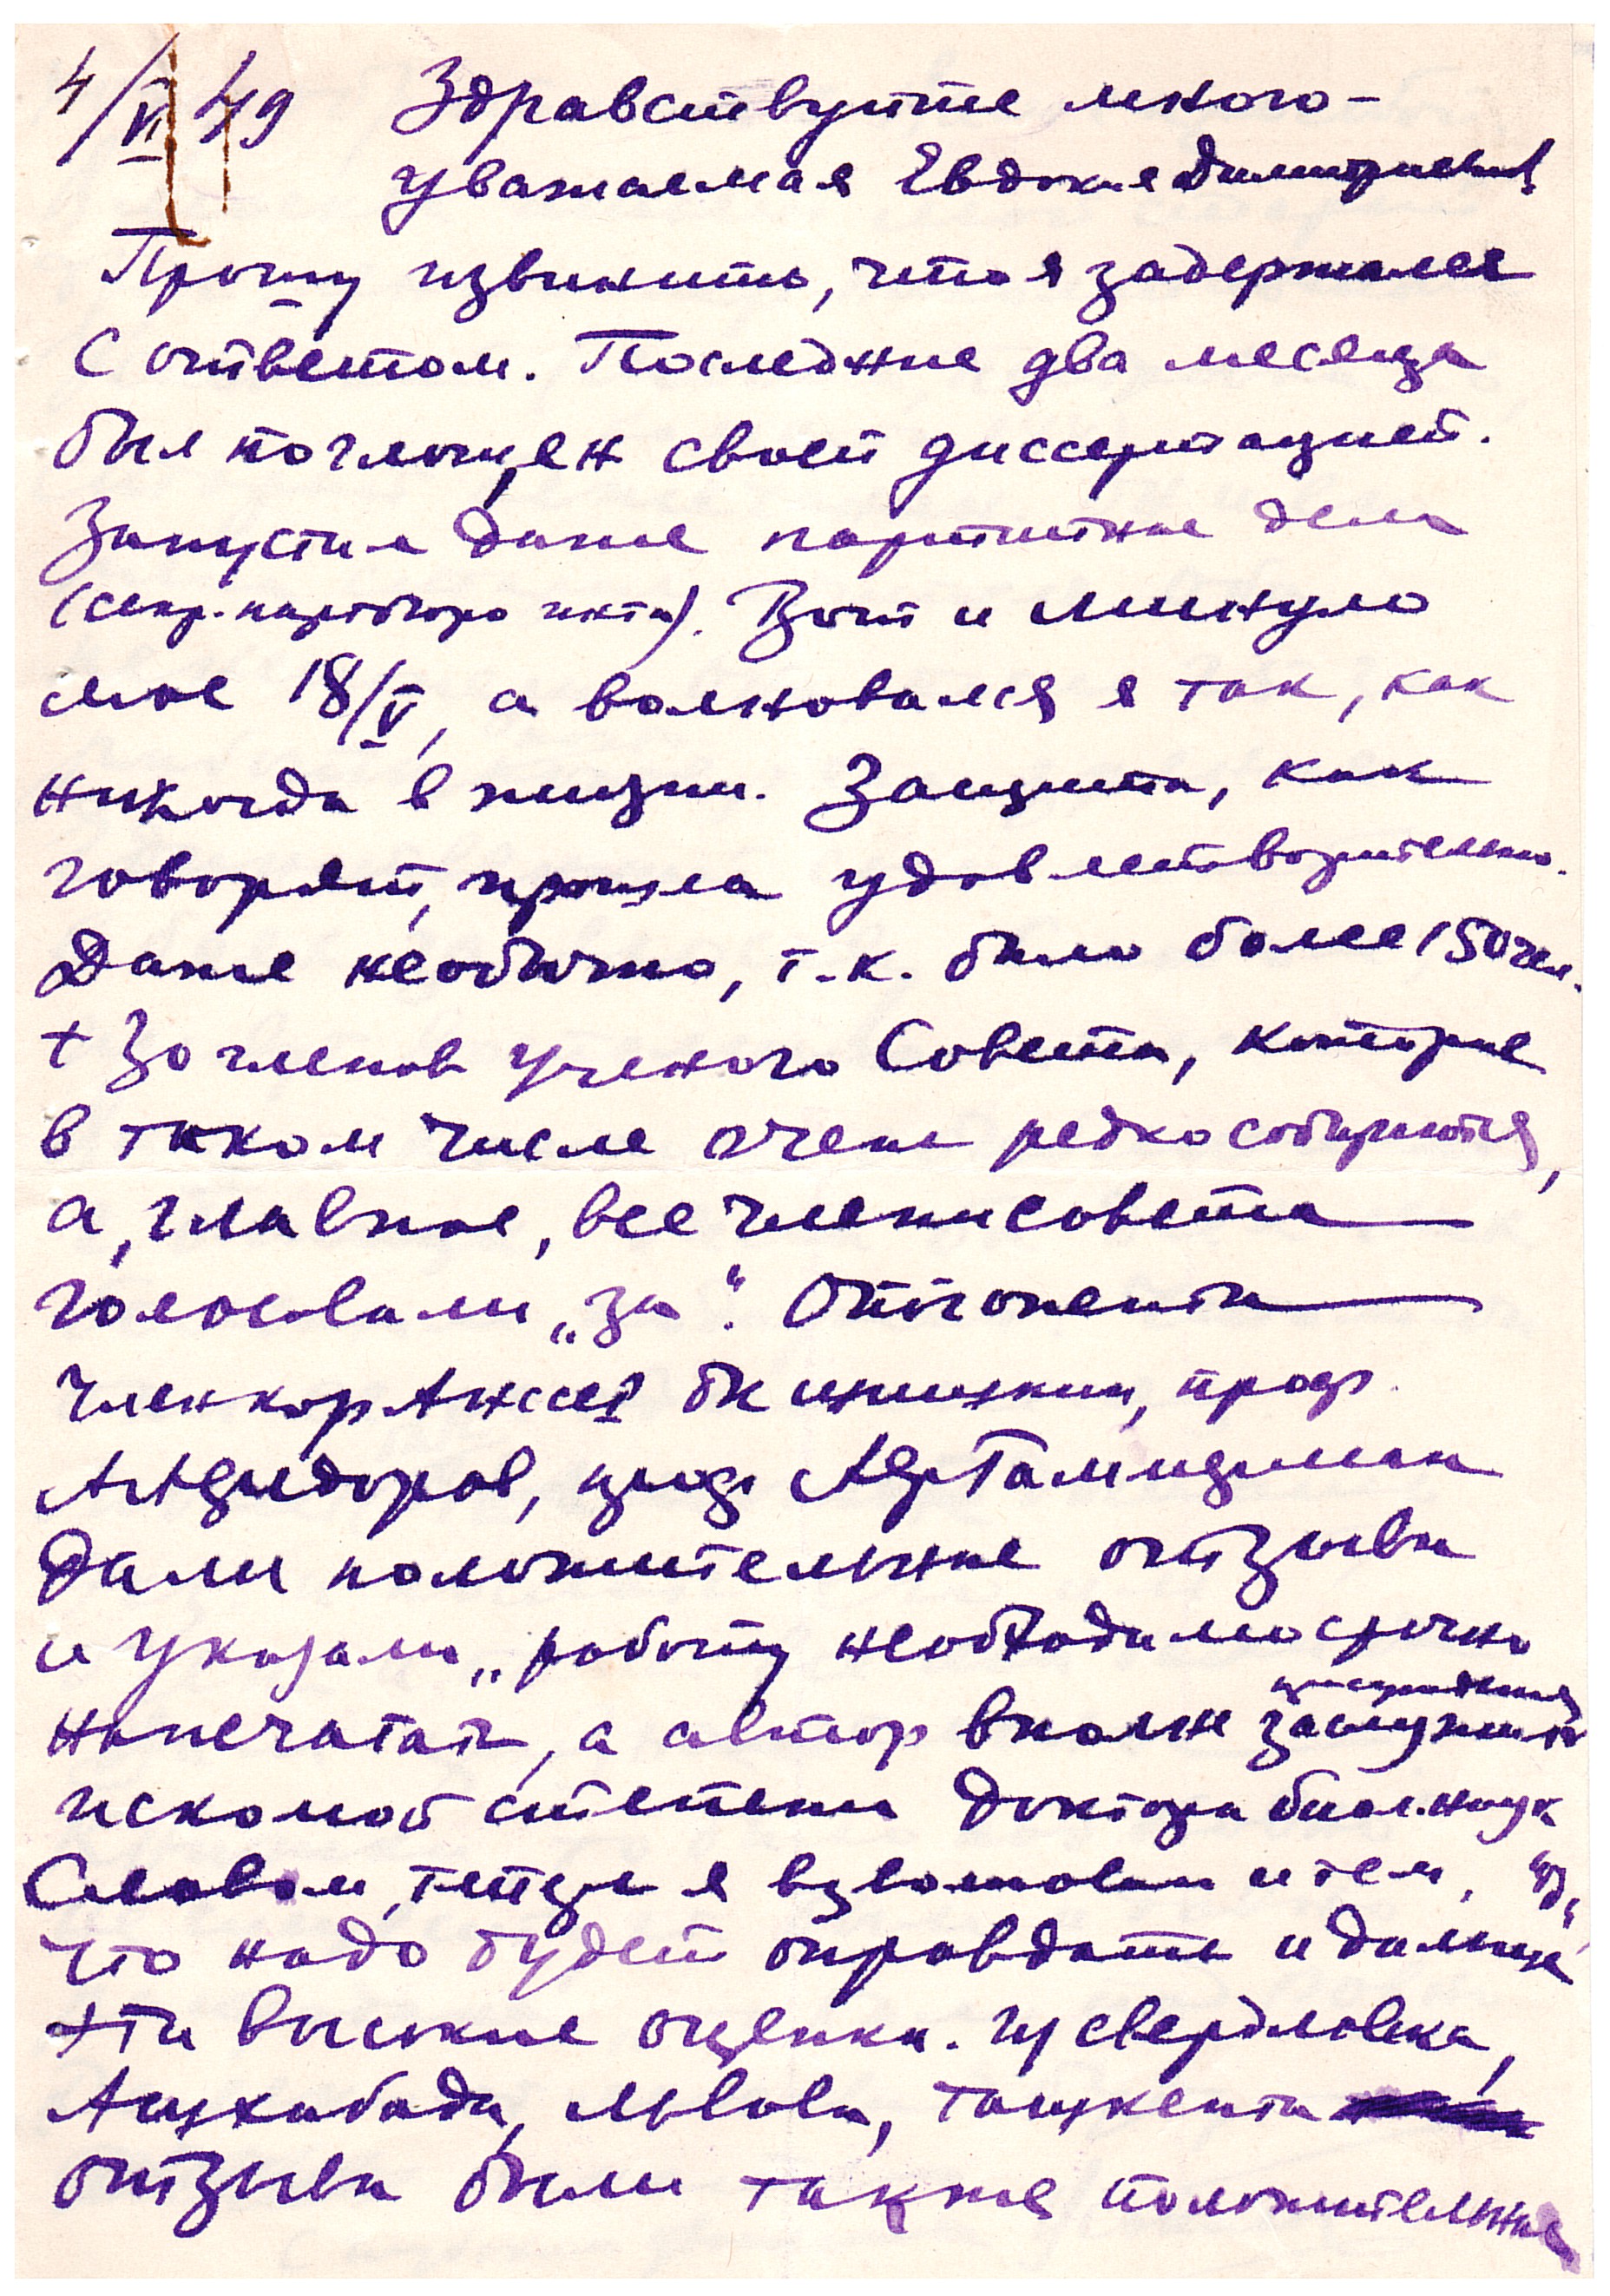 4/VI 49 Здравствуйте много-
уважаемая Евдокия Димитриевна
Прошу извинить, что я задержался
с ответом. Последние два месяца
был поглощен своей диссертацией.
Запустил даже партийные дела
(секр. партбюро инта). Вот и минуло
мое 18/V, а волновался я так, как
никогда в жизни. Защита, как
говорят, прошла удовлетворительно.
Даже необычно, т.к. было более 150 чел.
+ 30 членов ученого Совета, которые
в таком числе очень редко собираются,
а, главное, все члены совета
голосовали „за“. Оппоненты
членкор АН СССР проф.
проф.
дали положительные отзывы
и указали „работу необходимо срочно
напечатать, а автор вполне заслуживает присуждения
искомой степени доктора биол. наук“
Словом, теперь я взволнован и тем,
что надо будет оправдать и дальше
эти высокие оценки. Из Свердловска,
Ашхабада, Львова, Ташкента
отзывы были также положительные